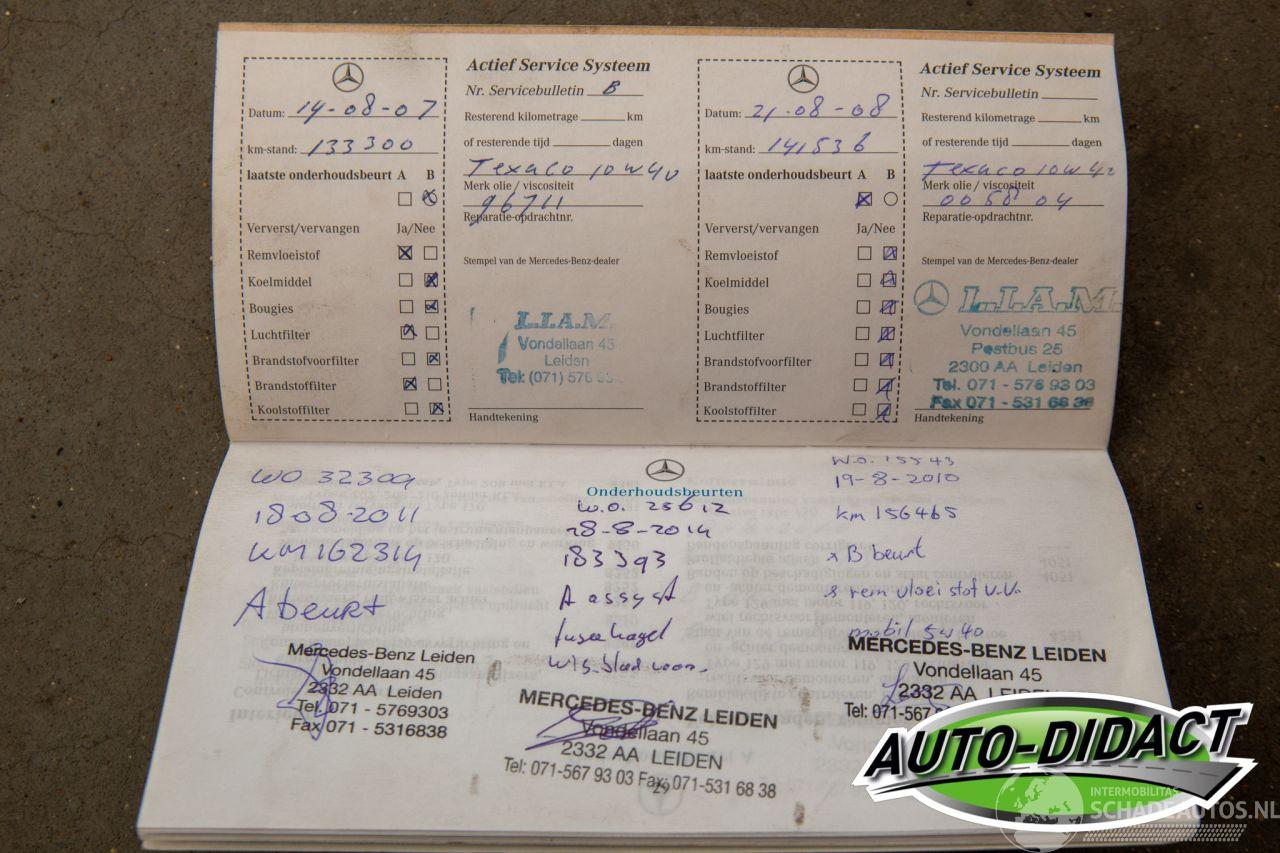 Actief Service Systeem
Nr. Servicebulletin B
Datum: 14-08-07
Resterend kilometrage km
km-stand: 133300
of resterende tijd dagen
laatste onderhoudsbeurt A B
Texaco 10w40
Merk olie / viscositeit
96711
Reparatie-opdrachtnr.
Ververst/vervangen Ja/Nee
Remvloeistof
Stempel van de Mercedes-Benz-dealer
Koelmiddel
Bougies
Luchtfilter
Brandstofvoorfilter
Brandstoffilter
Koolstoffilter
L.I.A.M.
Vondellaan 45
Leiden
Tel: (071) 576 93
Handtekening
Actief Service Systeem
Nr. Servicebulletin
Datum: 21-08-08
Resterend kilometrage km
km-stand: 141536
of resterende tijd dagen
laatste onderhoudsbeurt A B
Texaco 10w40
Merk olie / viscositeit
005804
Reparatie-opdrachtnr.
Ververst/vervangen Ja/Nee
Remvloeistof
Stempel van de Mercedes-Benz-dealer
Koelmiddel
Bougies
Luchtfilter
Brandstofvoorfilter
Brandstoffilter
Koolstoffilter
L.I.A.M.
Vondellaan 45
Postbus 25
2300 AA Leiden
Tel. 071 - 576 93 03
Fax 071 - 531 68 38
Handtekening
Onderhoudsbeurten
WO 32309
18-08-2011
KM 162314
A beurt
Mercedes-Benz Leiden
Vondellaan 45
2332 AA Leiden
Tel. 071 - 5769303
Fax 071 - 5316838
w.o. 25612
28-8-2014
183393
A assyst
fuseekogel
wis.blad voor.
MERCEDES-BENZ LEIDEN
Vondellaan 45
2332 AA LEIDEN
Tel: 071-567 93 03 Fax: 071-531 68 38
29
W.O. 15543
19-8-2010
km 156465
x B beurt
x rem vloeistof v.v.
mobil 5w40
MERCEDES-BENZ LEIDEN
Vondellaan 45
2332 AA
Tel: 071-567
AUTO-DIDACT
INTERMOBILITAS
SCHADEAUTOS.NL